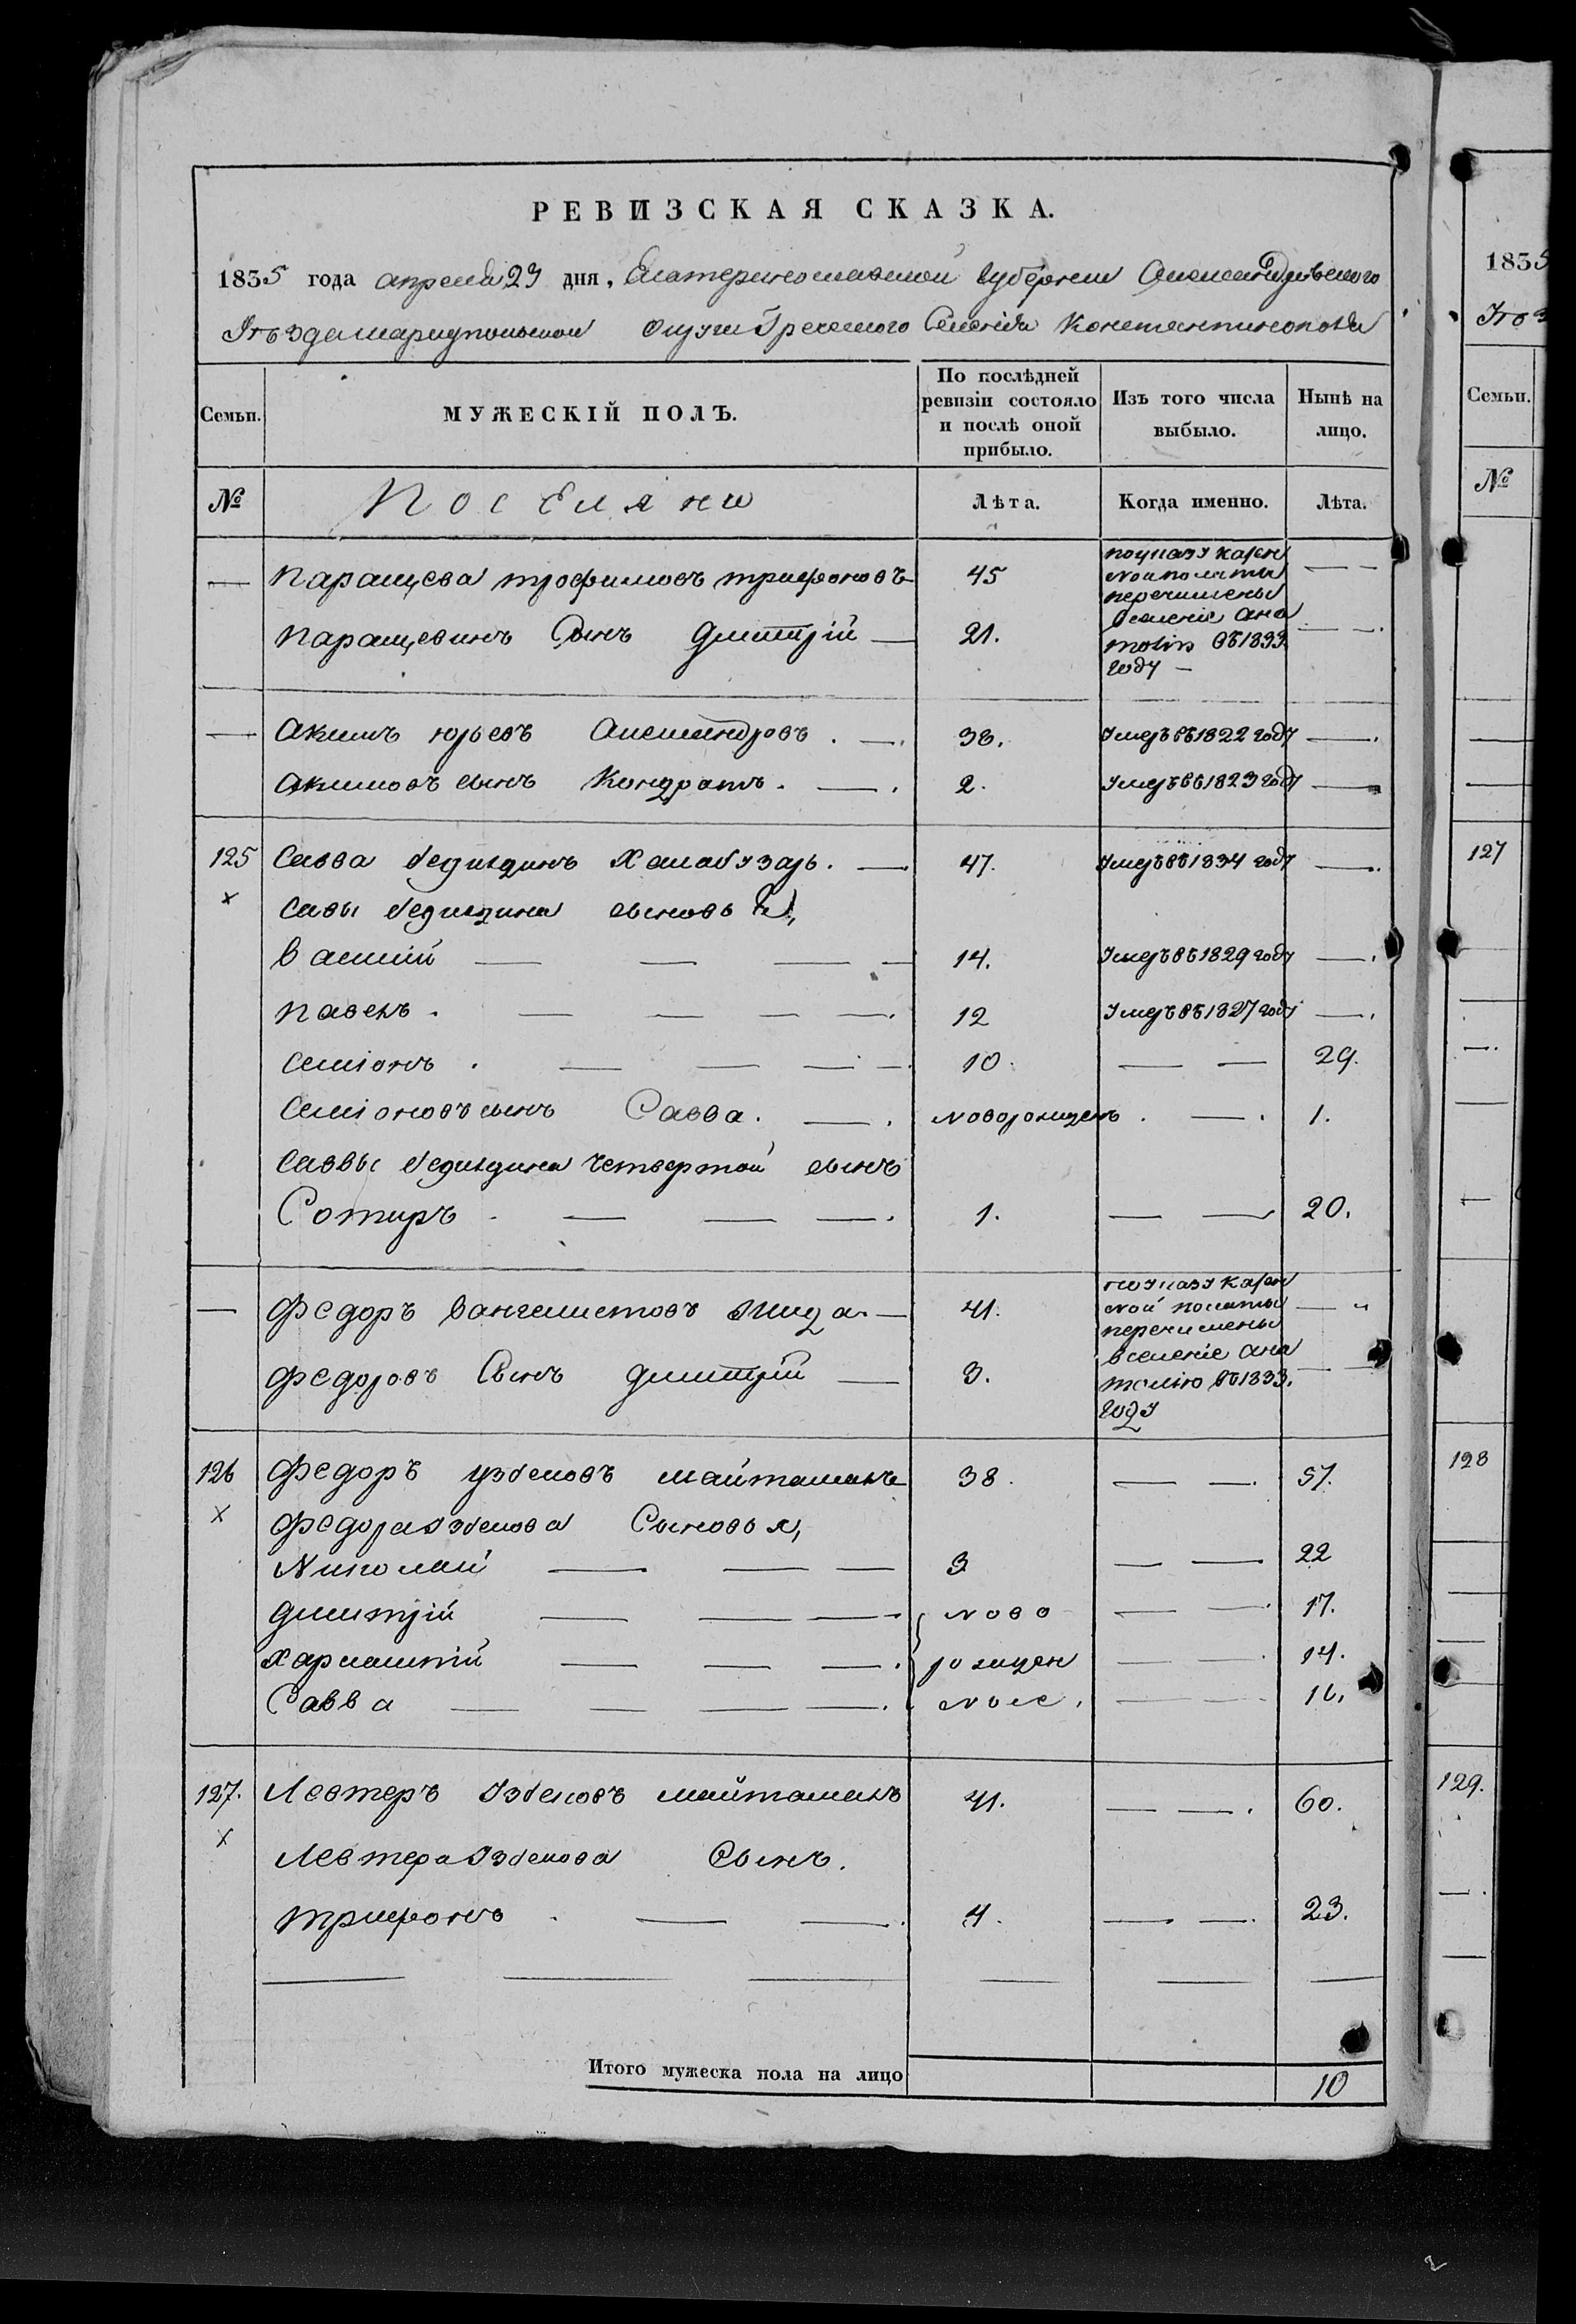 РЕВИЗСКАЯ СКАЗКА.
1835 года апреля 23 дня, Екатеринославской губернии Александровскаго
Уезда Мариупольской округи Греческого Селенія Константинополя
Семьи.
МУЖЕСКІЙ ПОЛЪ.
По послѣдней ревизіи состояло и послѣ оной прибыло.
Изъ того числа выбыло.
Нынѣ на лицо.
№
Поселяне
Лѣта.
Когда именно.
Лѣта.
— Паращева трофимовъ трифоновъ — 45 поуказу казен — —
ной полаты
перечислены
Паращевинъ Сынъ Дмитрій — 21. вселеніе Ана — —.
толію въ 1833
году —
— Акимъ юрьевъ Александровъ . —. 38. Умеръ въ 1822 году —.
Акимовъ сынъ Кондратъ . —. 2. Умеръ въ 1823 году —
125 Савва Халабузарь . — 47. Умеръ въ 1834 году —.
х Савы сыновья,
василій — — — — 14. Умеръ въ 1829 году —.
павелъ . — — — —. 12 Умеръ въ 1827 году —.
Семіонъ . — — — —. 10. — — 29.
Семіоновъ сынъ Савва. —. новорожденъ . —. 1.
Саввы четвертой сынъ
Сотиръ . — — —. 1. — — 20.
— Федоръ Вангелистовъ — 41. поуказу казен — „
ной полаты
перечислены
федоровъ Сынъ Дмитрій — 3. вселеніе Ана — —
толію въ 1833.
году
126 Федоръ узбековъ майтаманъ 38. — —. 57.
х Федора Узбекова Сыновья,
Николай — — — 3 — — 22
Дмитрій — — — ново — — 17.
Харлампій — — —. рожден — — 14.
Савва — — — —. ные. — — 10.
127. Левтеръ Узбековъ майтаманъ 41. — —. 60.
х Левтера Узбекова Сынъ.
трифонъ . — —. 4. — —. 23.
Итого мужеска пола на лицо 10
1835
Уез
Семьи.
№
127
128
129.